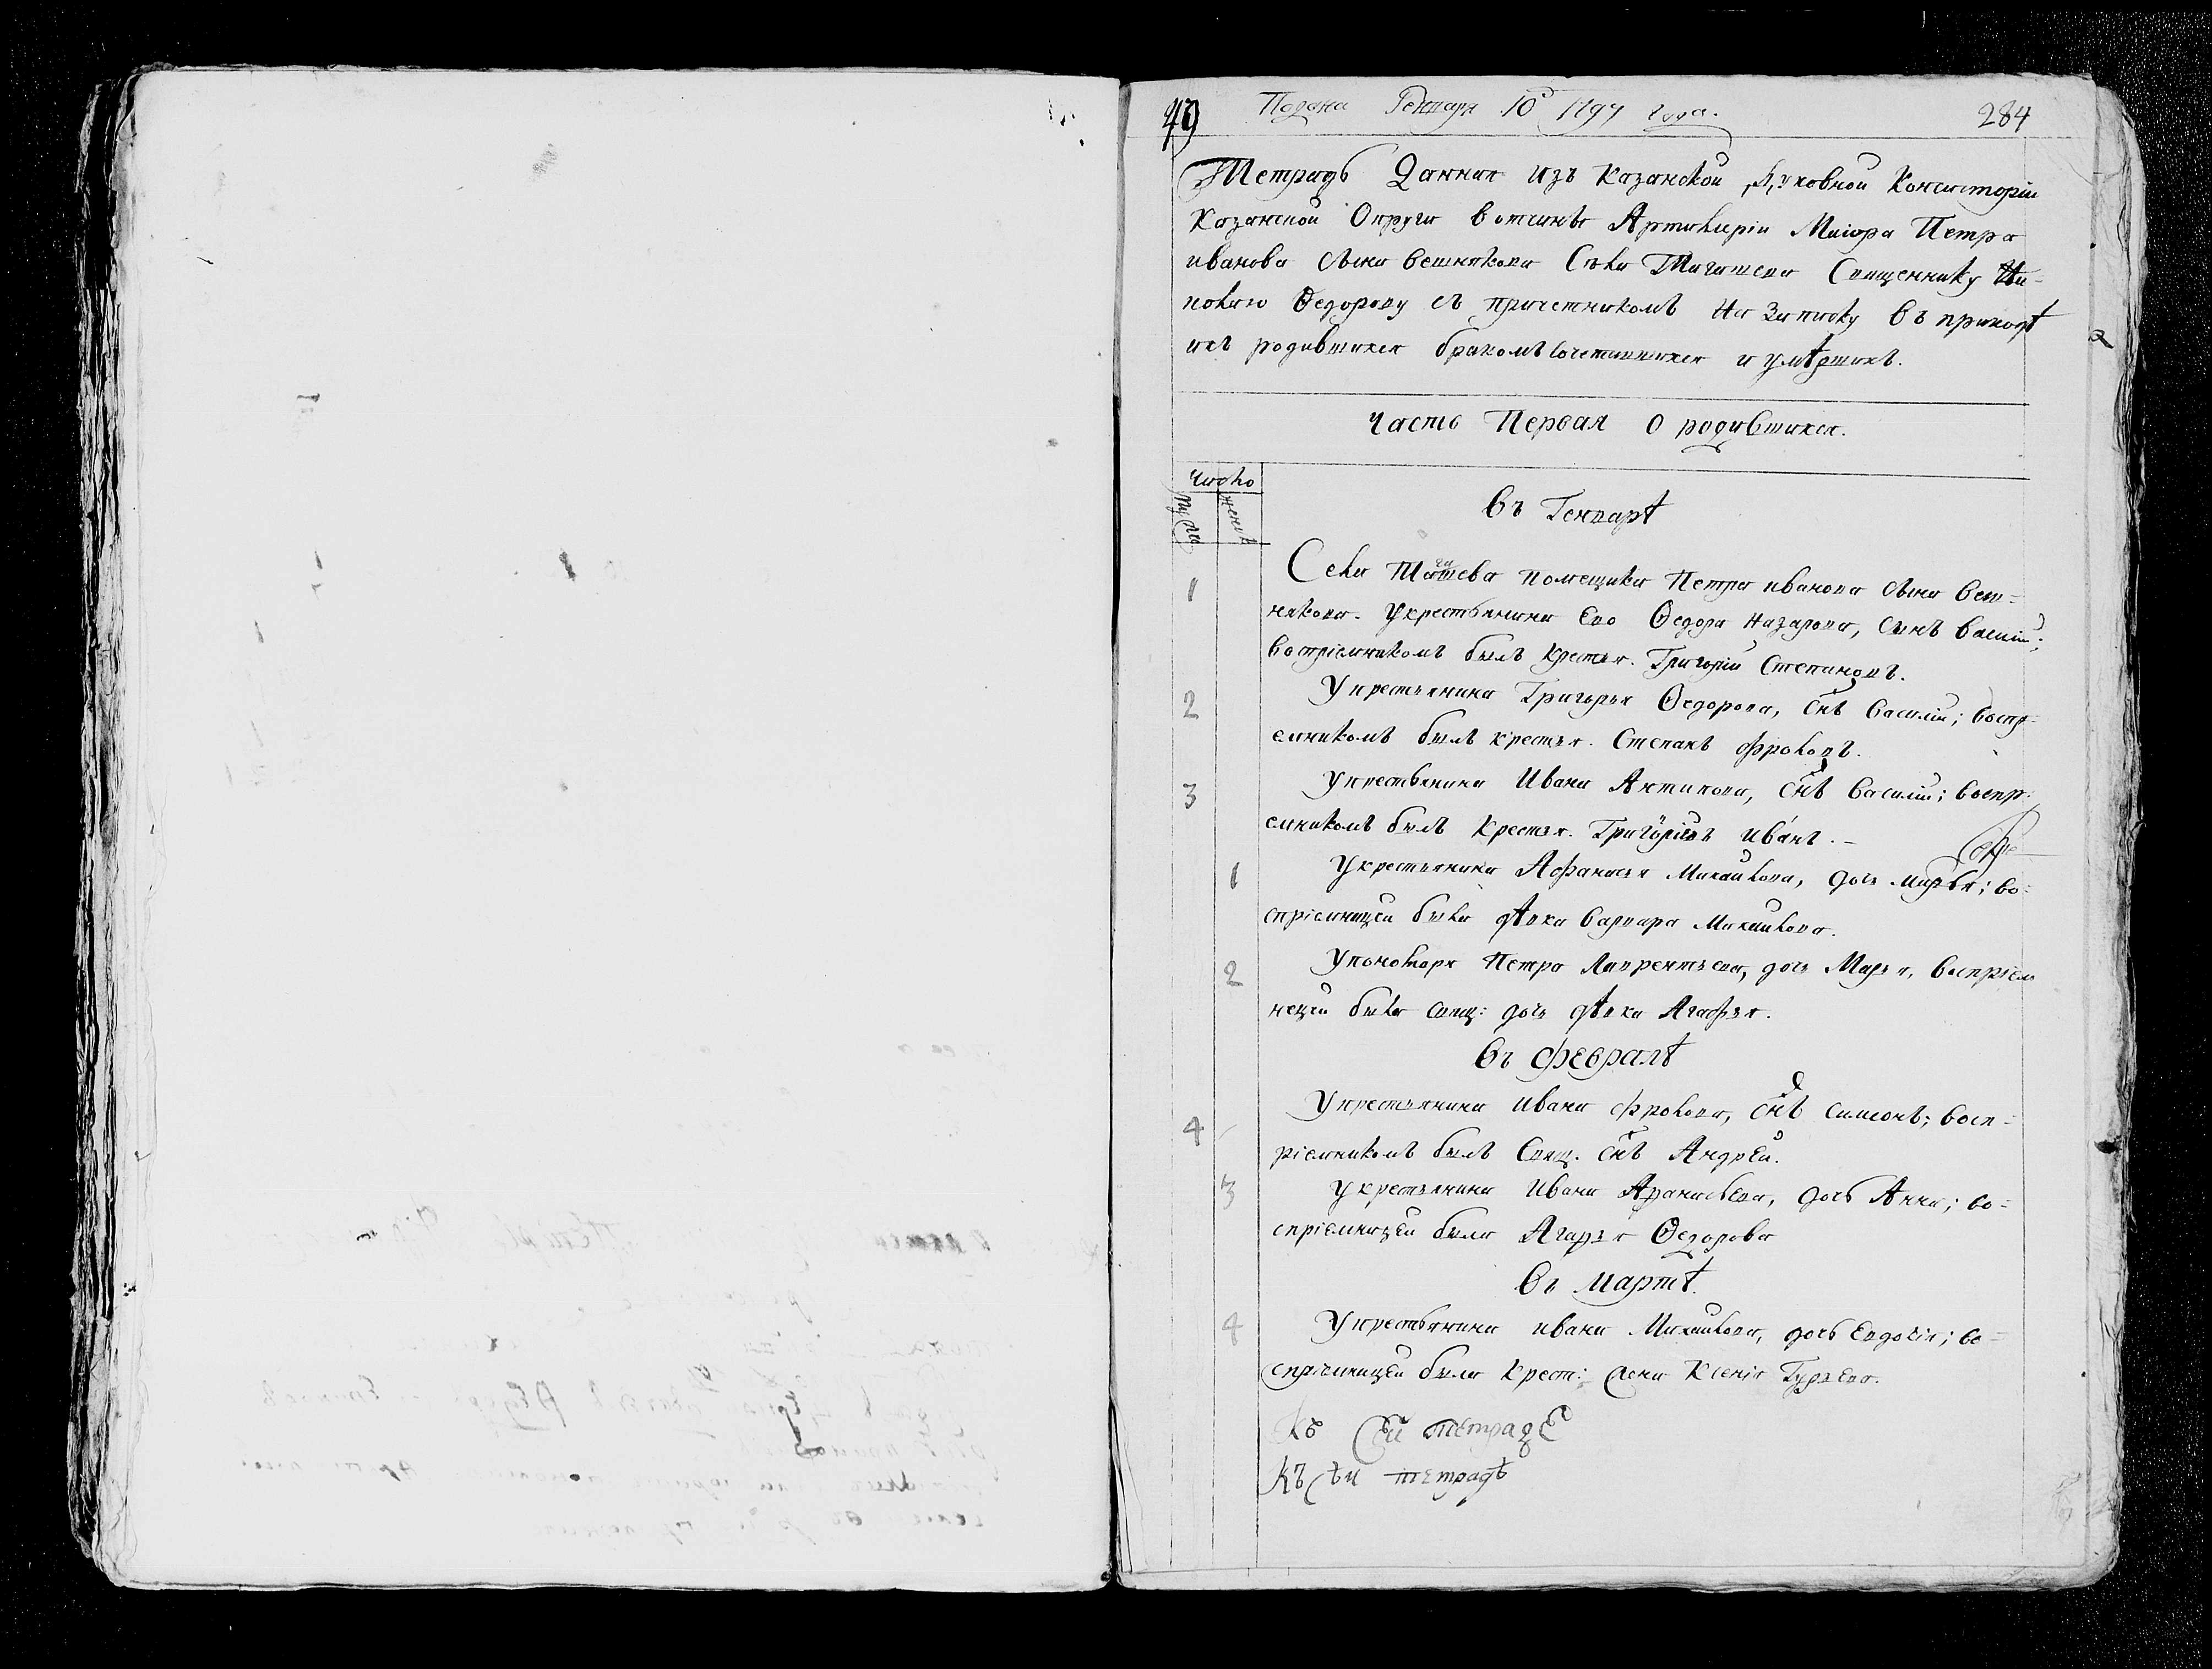 49 Подана Генваря 10г 1797 года. 284
Тетрадь Данная изъ Казанской Духовной Консисторіи
Казанской Округи вотчины Артиллеріи Маіора Петра
иванова сына вешнякова Села Тагашева Священнику
Федорову съ причетникомъ На Записку въ приходѣ
ихъ родившихся бракомъ сочетавшихся и умѣршихъ.
Часть Первая О родившихся.
Число
муска
женска
Въ Генварѣ
1 Села Тагашева помещика Петра иванова сына веш=
някова. У крестьянина Ево Ѳедора Назарова, сынъ василій;
воспріемникомъ былъ крестья. Григорій Степановъ.
2 У крестьянина Григорья Ѳедорова, снъ Василій; воспр=
емникомъ былъ крестья. Степанъ Фроловъ.
3 У крестьянина Ивана Антипова, снъ Василій; воспр:
емникомъ былъ Крестья. Григорьевъ Иванъ.
1 У крестьянина Афанасья Михайлова, дочь марья; во=
спріемницей была дѣвка Варвара Михайлова.
2 У пономаря Петра Лаврентьева, дочь Марья, воспріем
ницей была свящ: дочь дѣвка Агафья.
Въ Февралѣ
4 У крестьянина Ивана Фролова, снъ Симеонъ; восп=
ріемникомъ былъ Свящ. снъ Андрей.
3 У крестьянина Ивана Афанасьева, дочь Анна; во=
спріемницей была Агафья Ѳедорова
Въ Мартѣ.
4 У крестьянина ивана Михайлова, дочь Евдокія; во=
спріемницей была крест: жена Ксенія Гурьева.
Къ Сей тетраде
Къ сѣй тетрадѣ